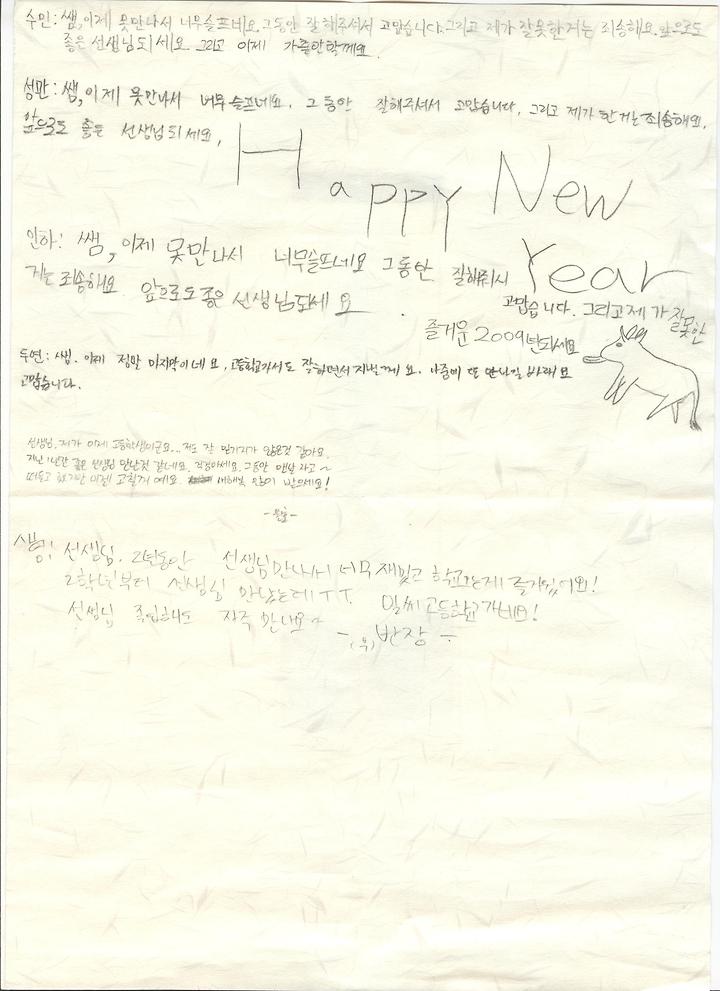 수민: 쌤, 이제 못만나서 너무슬프네요. 그동안 잘해주셔서 고맙습니다. 그리고 제가 잘못한거는 죄송해요. 앞으로도
좋은 선생님되세요. 그리고 이제
성관: 쌤, 이제 못만나서 너무 슬프네요. 그동안 잘해주셔서 고맙습니다. 그리고 제가 한거는 죄송해요.
앞으로도 좋은 선생님되세요.
Happy New
Year
인하: 쌤, 이제 못만나서 너무슬프네요 그동안 잘해줘서
고맙습니다. 그리고제가 잘못한
거는 죄송해요 앞으로도좋은 선생님되세요.
즐거운 2009년되세요
두연: 쌤. 이제 정말 마지막이네요, 고등학교가서도 잘하면서 지낼께요. 나중에 또 만나길 바래요
고맙습니다.
선생님, 제가 이제 고등학생이군요... 저도 잘 믿기지가 않은것 같아요.
지난 1년간 좋은 선생님 만난것 같네요. 걱정마세요. 그동안 맨날 자고~
떠들고 했지만 이젠 고칠게 예요 새해복 많이 받으세요!
생: 선생님. 2년동안 선생님만나서 너무 재밌고 학교오는게 즐거웠어요!
2학년부터 선생님 만났는데ㅜㅜ. 벌써 고등학교가네요!
선생님 졸업해도 자주 만나요~
-(부)반장-